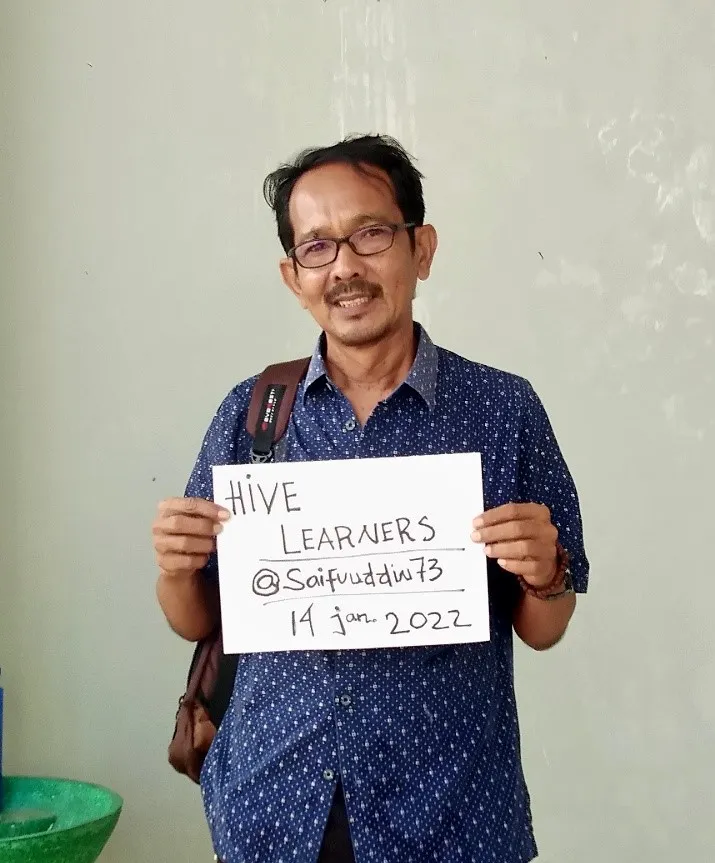 HIVE
LEARNERS
@Saifuuddin73
14 jan. 2022